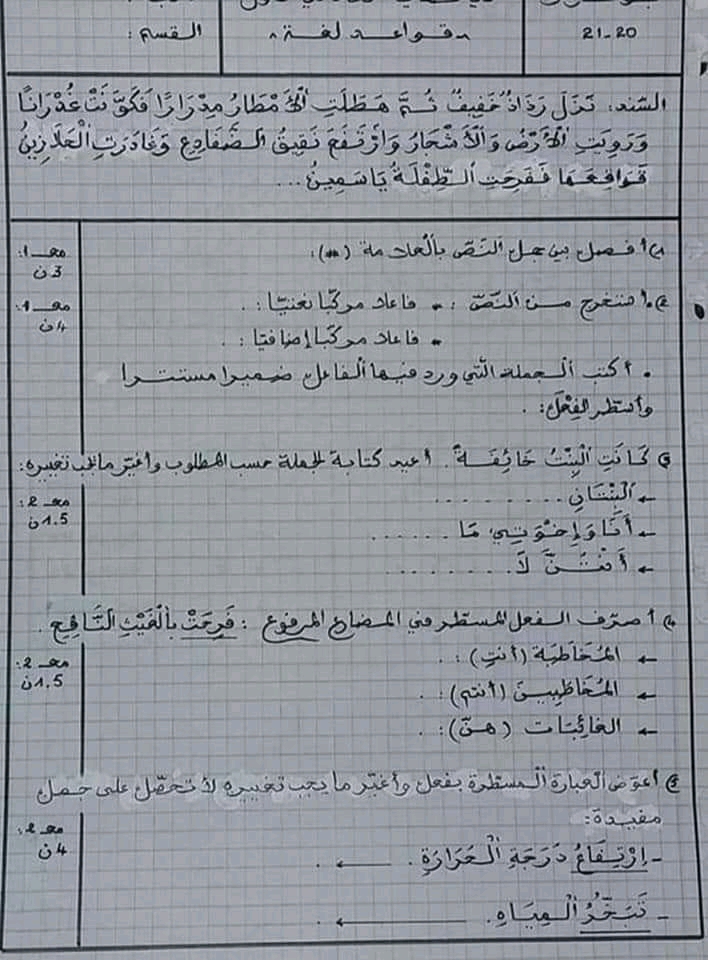 21-20
~ قواعد لغة ~
القسم :
السّند: نَزَلَ رَذَاذٌ خَفِيفٌ ثُمَّ هَطَلَتِ الْأَمْطَارُ مِدْرَارًا فَكَوَّنَتْ غُدْرَانًا
وَرَوِيَتِ الْأَرْضُ وَالْأَشْجَارُ وَارْتَفَعَ نَقِيقُ الضَّفَادِعِ وَغَادَرَتِ الْحَلَازِينُ
قَوَاقِعَهَا فَفَرِحَتِ الطِّفْلَةُ يَاسَمِينُ...
1) أفصل بين جمل النّصّ بالعلامة (*):
معـ1:
3ن
2) أستخرج من النّصّ : * فاعلا مركّبا نعتيّا : .
معـ1:
4ن
* فاعلا مركّبا إضافيّا : .
• أكتب الجملة الّتي ورد فيها الفاعل ضميرا مستترا
وأسطّر الفِعْلَ: .
3) كَانَتِ الْبِنْتُ خَائِفَةً. أعيد كتابة الجملة حسب المطلوب وأغيّر ما يجب تغييره:
← الْبِنْتَانِ ........
معـ2:
1.5ن
← أَنَا وَإِخْوَتِي مَا ......
← أَنْتُنَّ لَا ........
4) أصرّف الفعل المسطّر في المضارع المرفوع : فَرِحَتْ بِالْغَيْثِ النَّافِعِ .
← المُخَاطَبَة (أنتِ) : .
معـ2:
1.5ن
← المُخَاطَبِينَ (أنتم) : .
← الغائِبَات (هنّ) : .
5) أعوّض العبارة المسطّرة بفعل وأغيّر ما يجب تغييره لأتحصّل على جمل
مفيدة:
معـ2:
4ن
- اِرْتِفَاعُ دَرَجَةِ الْحَرَارَةِ . ← .
- تَبَخُّرُ الْمِيَاهِ. ← .